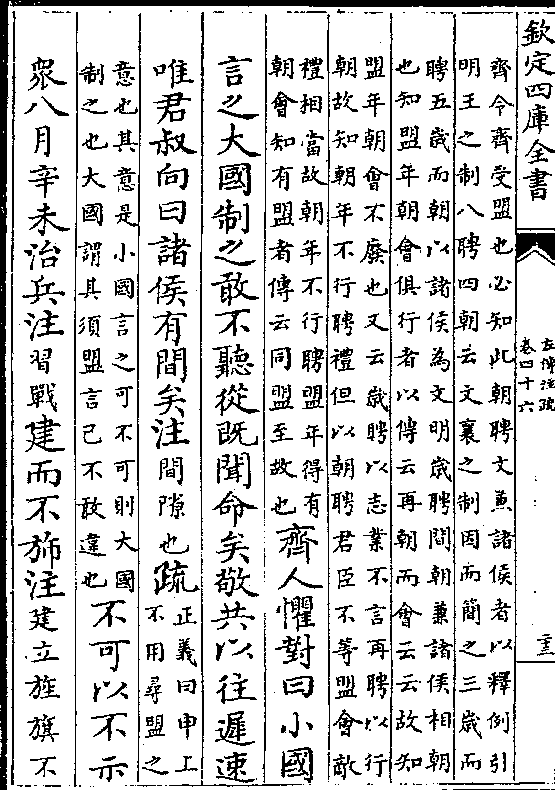 欽定四庫全書
左傳注疏
卷四十六
齊令齊受盟也必知此朝聘文兼諸侯者以釋例引
明王之制八聘四朝云文襄之制因而簡之三歲而
聘五歲而朝以諸侯為文明歲聘間朝兼諸侯相朝
也知盟年朝會俱行者以傳云再朝而會云云故知
盟年朝會不廢也又云歲聘以志業不言再聘以行
朝故知朝年不行聘禮但以朝聘君臣不等盟會敵
禮相當故朝年不行聘盟年得有
朝會知有盟者傳云同盟至故也齊人懼對曰小國
言之大國制之敢不聽從既聞命矣敬共以往遲速
唯君叔向曰諸侯有間矣注間隙也疏正義曰申上
不用尋盟之
意也其意是小國言之可不可則大國
制之也大國謂其須盟言己不敢違也不可以不示
衆八月辛未治兵注習戰建而不斾注建立旌旗不